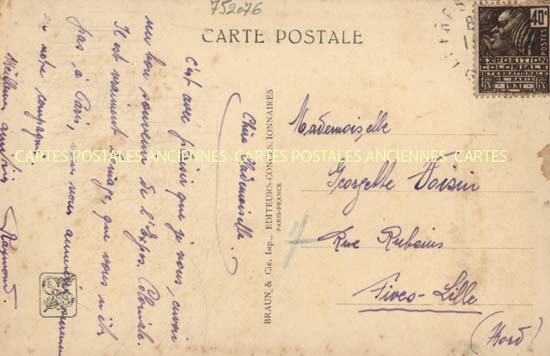 752076
CARTE POSTALE
40c
POSTES
EXPOSITION
COLONIALE
INTERNATIONALE
PARIS
1931
Chère Mademoiselle.
C'est avec plaisir que je vous envoi
un bon souvenir de l'Expos. Coloniale.
Il est vraiment dommage que vous n'êtes
pas à Paris, vous nous
en notre compagnie.
Meilleure
Raymond.
BRAUN & Cie, Imp., EDITEURS-CONCESSIONNAIRES
PARIS-FRANCE
CARTES POSTALES ANCIENNES CARTES POSTALES ANCIENNES CARTES
Mademoiselle
Georgette Voisin
Rue Rubens
7
Fives-Lille
(Nord)